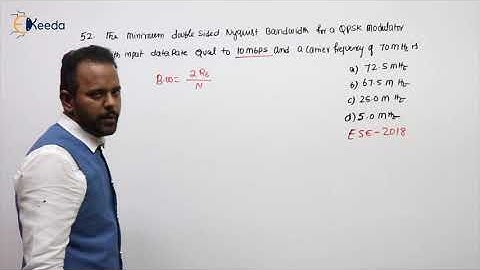 EKeeda
52. The minimum double sided Nyquist Bandwidth for a QPSK Modulator
input data Rate Qual to 10 mbps and a carrier frequency of 70 mHz is
B.W = 2 Rb / N
a) 72.5 mHz
b) 67.5 mHz
c) 25.0 mHz
d) 5.0 mHz
ESE-2018